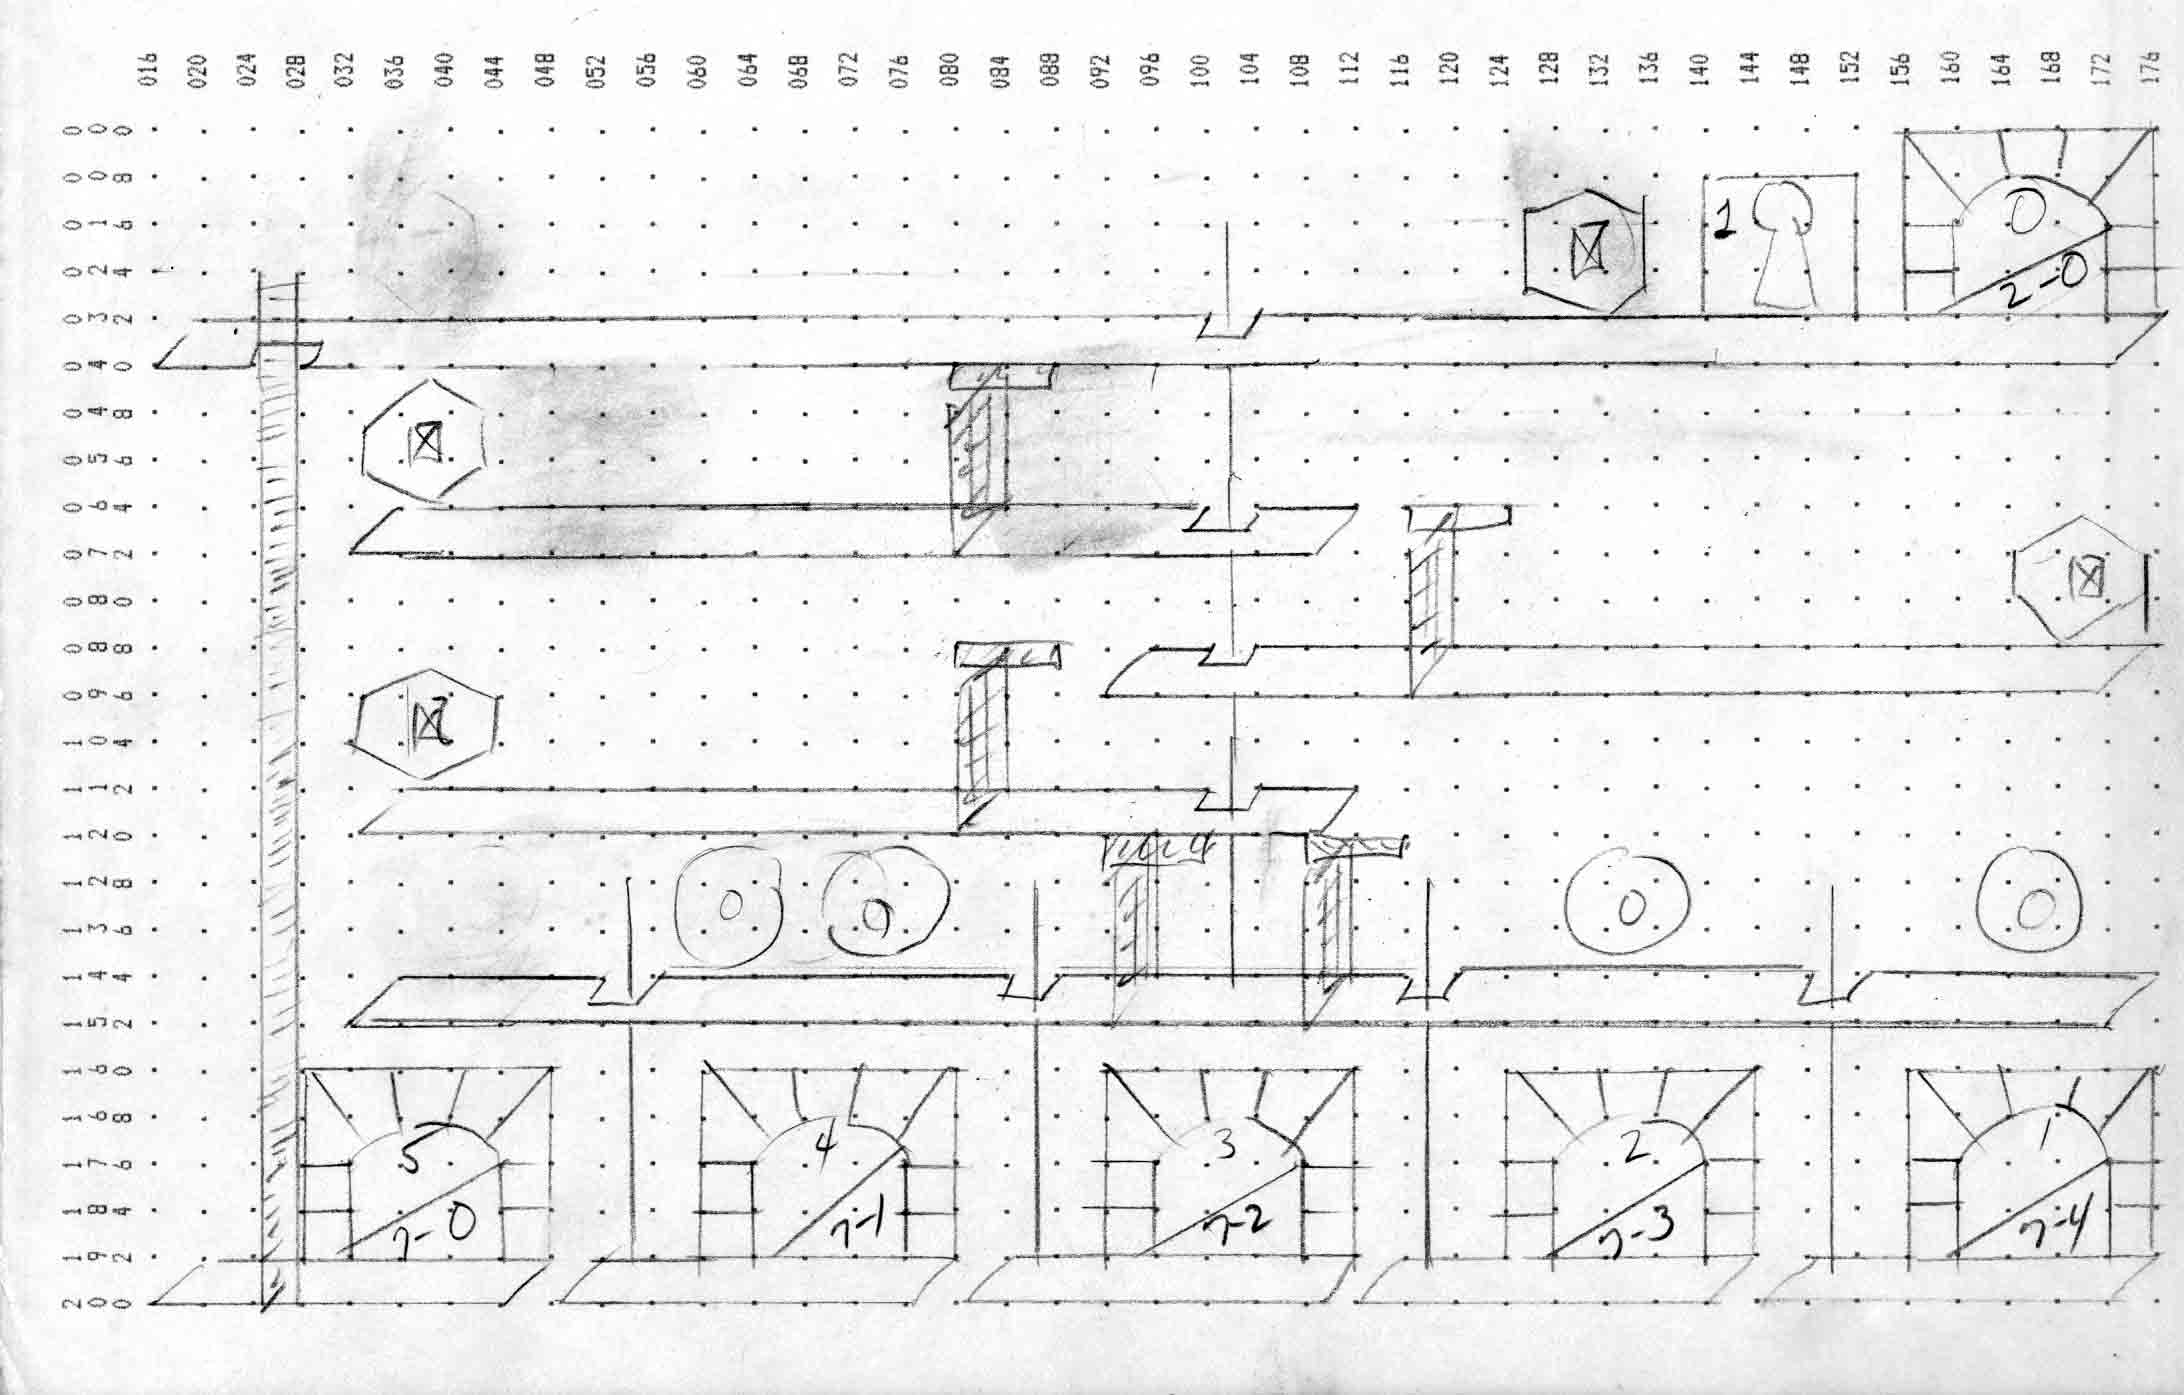 016 020 024 028 032 036 040 044 048 052 056 060 064 068 072 076 080 084 088 092 096 100 104 108 112 116 120 124 128 132 136 140 144 148 152 156 160 164 168 172 176
000
008
016
024
032
040
048
056
064
072
080
088
096
104
112
120
128
136
144
152
160
168
176
184
192
200
1
0
2-0
5
7-0
4
7-1
3
7-2
2
7-3
1
7-4